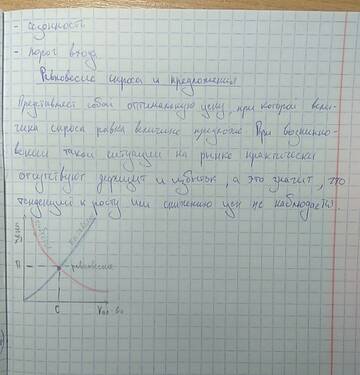 - сезонность
- порог входа
Равновесие спроса и предложения
Представляет собой оптимальную цену, при которой вели-
чина спроса равна величине предложе При возникно-
вении такой ситуации на рынке практически
отсутствуют дефицит и избыток, а это значит, что
тенденций к росту или снижению цен не наблюдается
цена
спрос
П
равновесие
С
кол-во